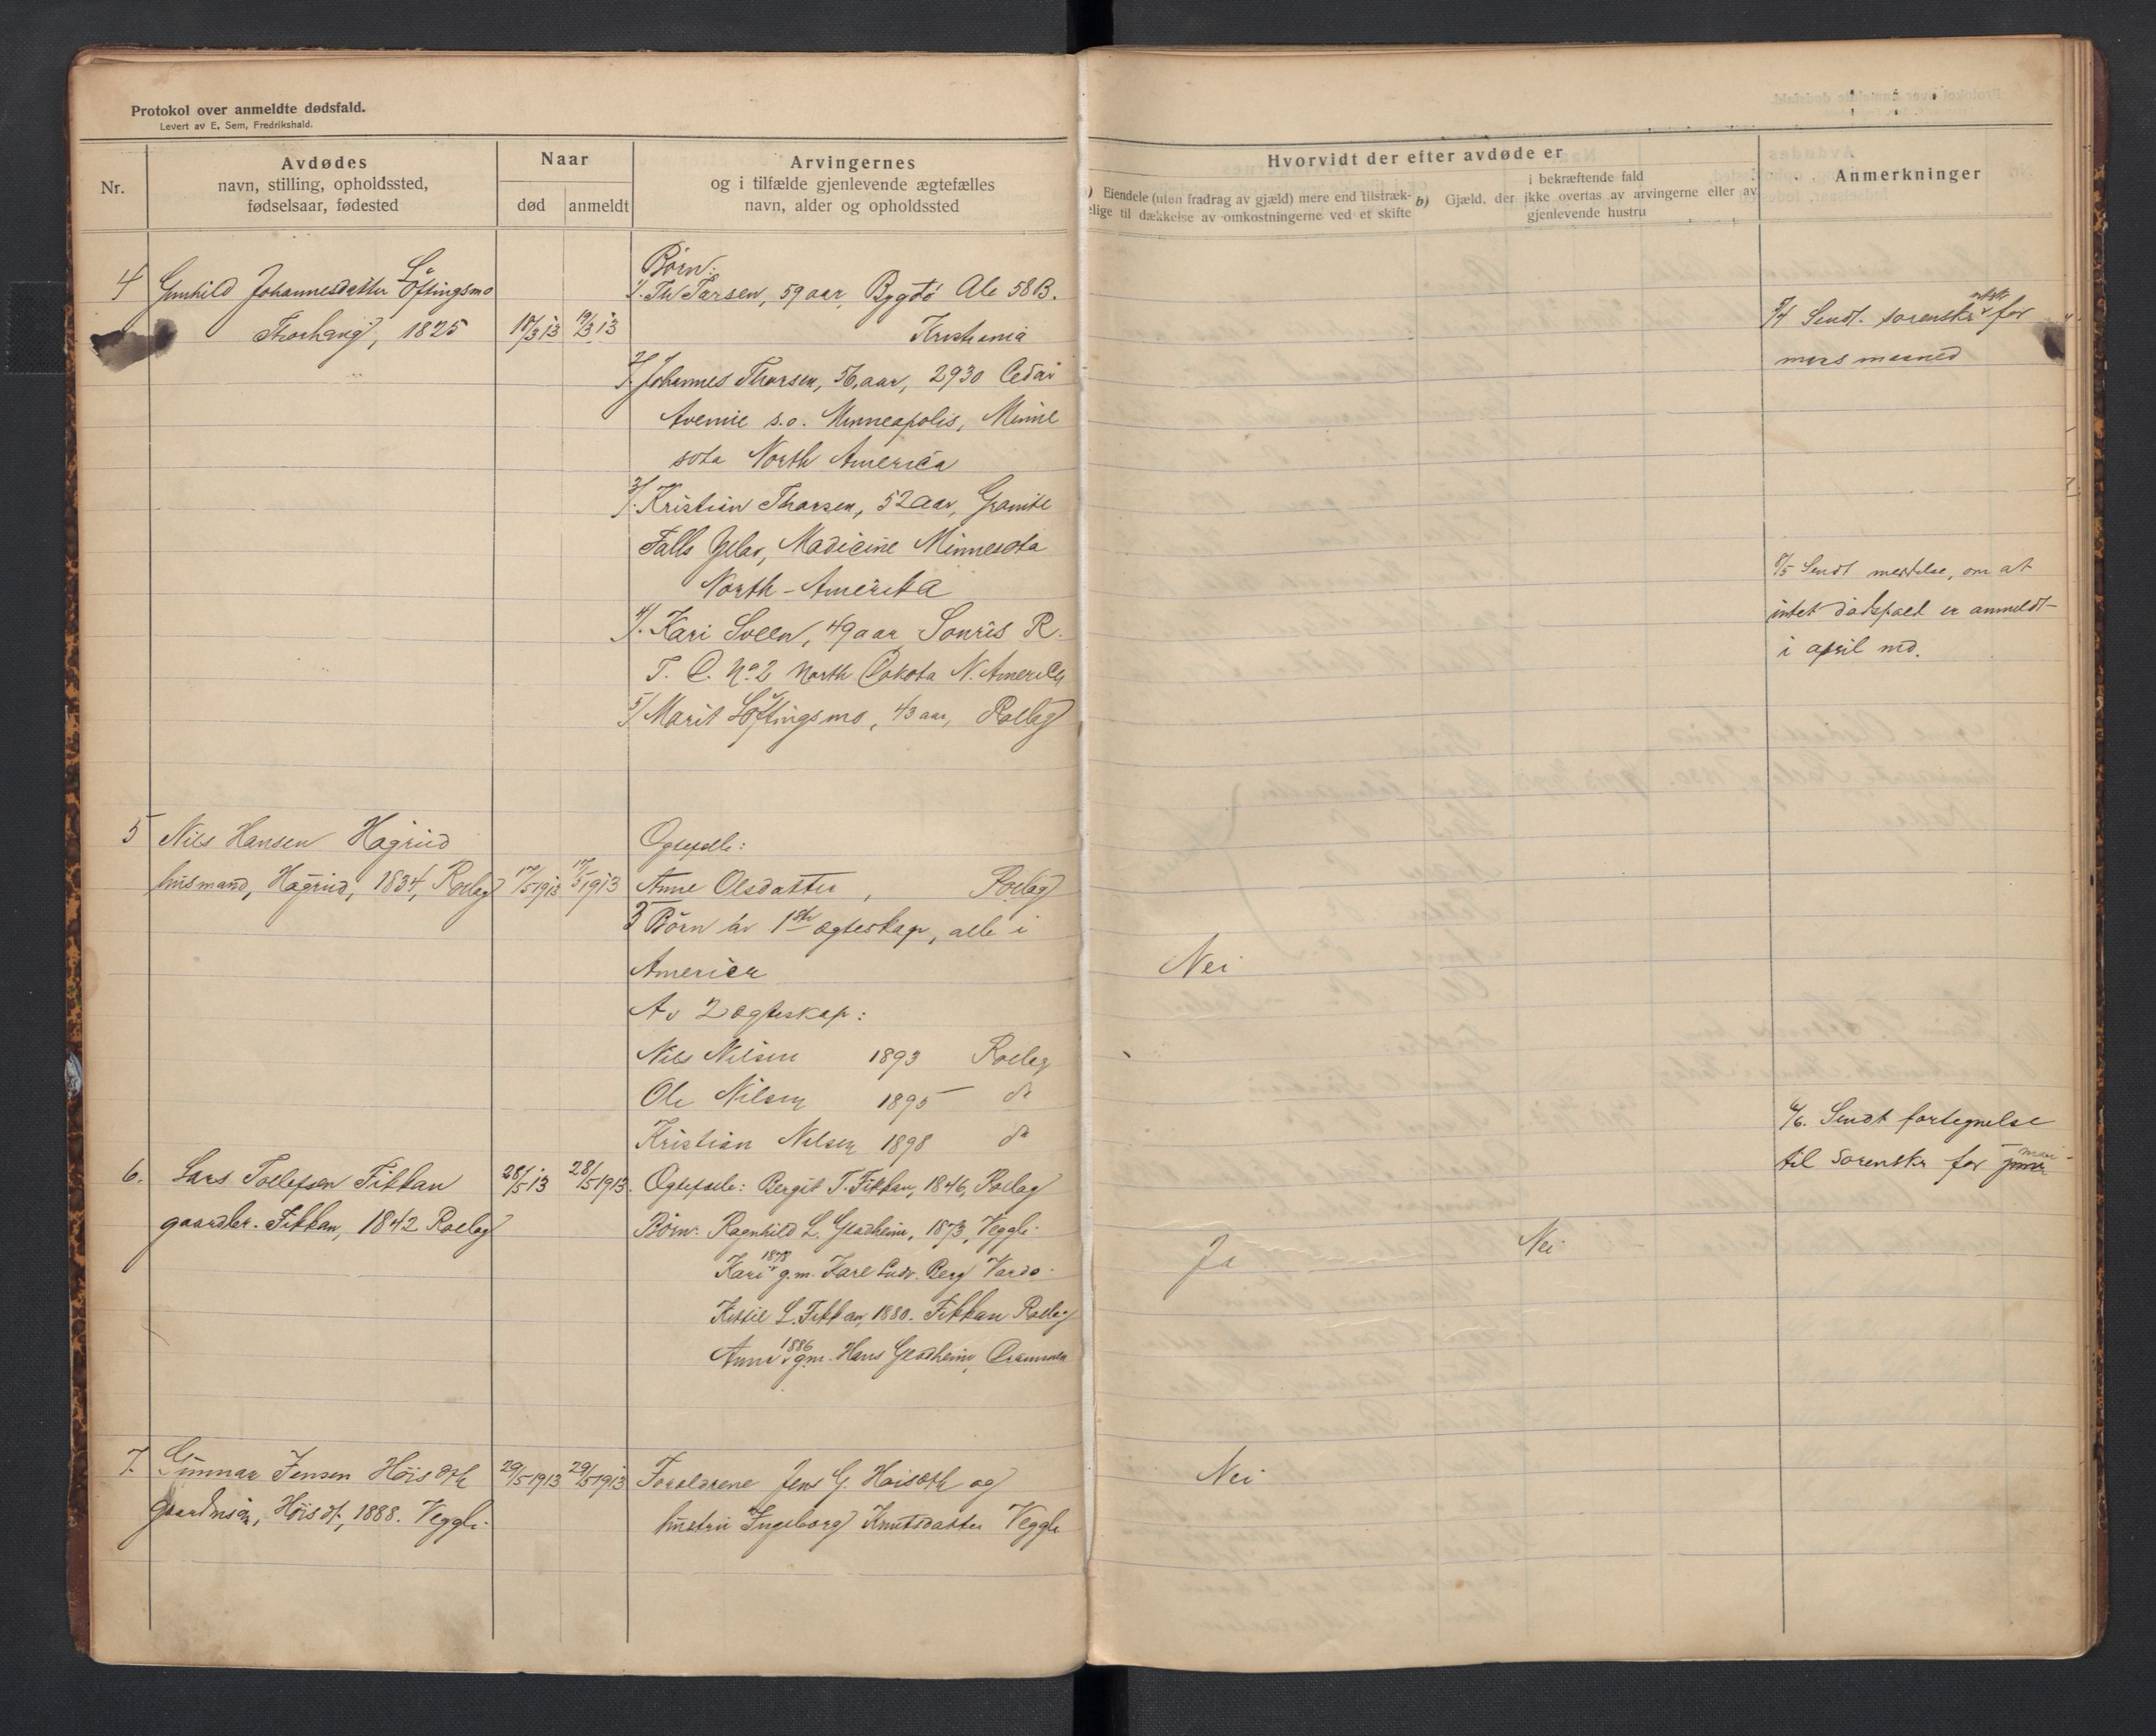 Protokol over anmeldte dødsfald.
Levert av E. Sem, Fredrikshald.
Nr.
Avdødes
navn, stilling, opholdssted,
fødselsaar, fødested
Naar
død
anmeldt
Arvingernes
og i tilfælde gjenlevende ægtefælles
navn, alder og opholdssted
Hvorvidt der efter avdøde er
Eiendele (uten fradrag av gjæld) mere end tilstræk-
elige til dækkelse av omkostningerne ved et skifte
b) Gjæld, der
i bekræftende fald
ikke overtas av arvingerne eller av
gjenlevende hustru
Anmerkninger
4 Gunhild Johannesdatter Löftingsmo
1825 18/3 13 19/3 13
Børn:
1/. Th Tarsen, 59 aar, Bygdö Ale 58 B.
Kristiania
2/. Johannes Thorsen, 56 aar, 2930 Cedar
Avenue s.o. Minneapolis, Minne
sota North America
3/. Kristian Thorsen, 52 aar, Granite
Falls Madicine Minnesota
North-Amerika
4/. Kari Sveen, 49 aar Souris R.
No 2 North Dakota N. America
5/ Marit Löftingsmo, 43 aar, Rollag
Sendt sorenskr for
mars maaned
8/5 Sendt meddelse, om at
intet dødsfald er anmeldt
i april md.
5 Nils Hansen Hagrud
husmand, Hagrud, 1834, Rollag 17/5 1913 17/5 1913
Ogtefelle:
Anne Olsdatter, Rollag
3 Børn av 1ste ogteskap, alle i
America
Av 2 ogteskap:
Nils Nilsen 1893 Rollag
Ole Nilsen 1895 do
Kristian Nilsen 1898 do
Nei
6. Lars Tollefsen Fikkan 28/5 13 28/5 1913.
gaardbr. Fikkan, 1842 Rollag
Ogtefelle: Bergit T. Fikkan, 1846, Rollag
Børn: Ragnhild L. Gladheim, 1873, Veggli.
Kari 1878 g.m. Karl Ludv. Berg Vardø.
Kittil L. Fikkan, 1880. Fikkan Rollag
Anne 1886 g.m. Hans Gladheim, Drammen
Ja
Nei
Sendt fortegnelse
til sorenskr for mai
7. Gunnar Jensen Höisæth 29/5 1913 29/5 1913
Veggli. 1888.
Foreldrene Jens G. Hoisæth og
hustru Ingeborg Knutsdatter Veggli
Nei